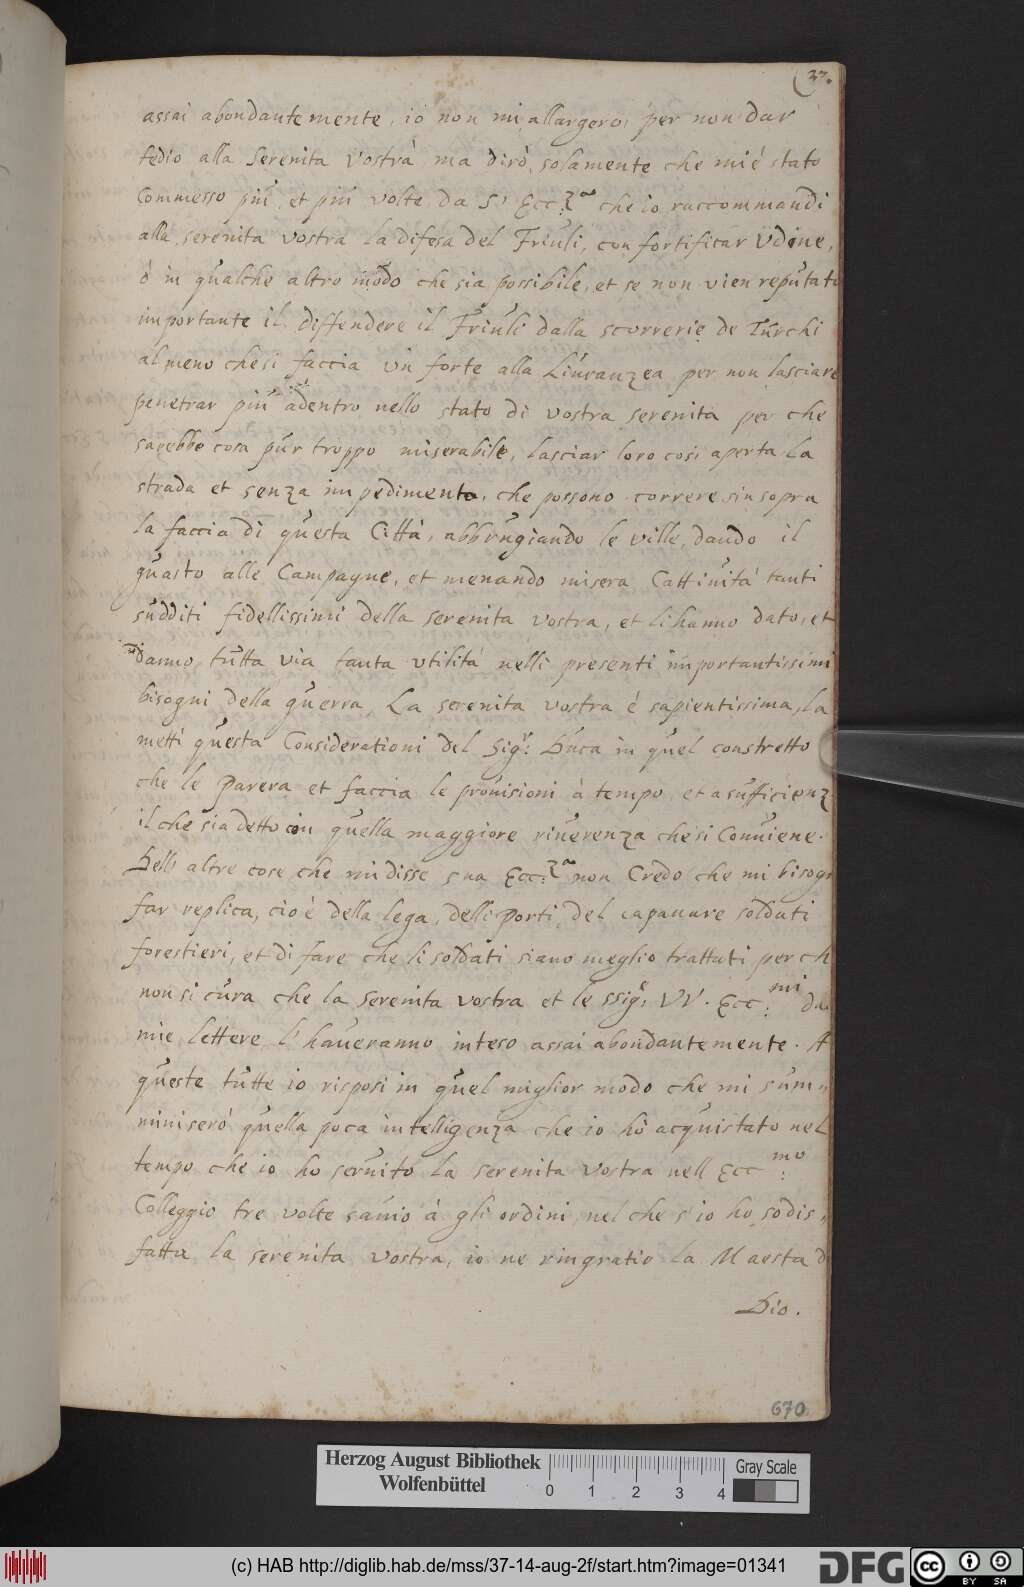 37.
assai abondantemente, io non mi allargerò, per non dar
tedio alla Serenita Vostrà ma dirò, solamente che mi é stato
Commesso piú et piú volte da S' Ecc:za che io raccommandi
alla serenita vostra la difesa del Friuli, con fortificar Udine,
ò in qualche altro modo che sia possibile, et se non vien reputato
importante il diffendere il Friuli dalla scorrerie de Turchi
al meno che si faccia un forte alla Liuranzea per non lasciare
penetrar piú adentro nello stato di vostra serenita per che
sarebbe cosa pur troppo miserabile, lasciar loro cosi aperta la
strada et senza impedimento, che possono correre sin sopra
la faccia di questa Città, abbrugiando le ville, dando il
guasto alle Campagne, et menando misera Cattiuità tanti
sudditi fidellissimi della serenita vostra, et li hanno dato, et
danno tutta via tanta utilità nelli presenti importantissimi
bisogni della guerra, La serenita vostra é sapientissima, la
metti questa Considerationi del Sigr: Duca in quel constretto
che le Parera et faccia le prouisioni à tempo et a sufficienz
il che sia detto con quella maggiore riuerenza che si Conuiene.
Delle altre cose che mi disse sua Ecc:za non Credo che mi bisogn
far replica, cio è della lega, delli Porti, del capauare soldati
forestieri, et di fare che li soldati siano meglio trattati per ch
non si cura che la serenita vostra et le ssigre VV. Ecc:mi da
mie lettere l'haueranno inteso assai abondantemente. A
queste tutte io risposi in quel miglior modo che mi sum-
ministrò quella poca intelligenza che io hò acquistato nel
tempo che io ho seruito la serenita vostra nell Ecc:mo
Colleggio tre volte sauio à gli ordini nel che s'io ho sodis,
fatta la serenita vostra, io ne ringratio la Maesta d
Dio.
670
Herzog August Bibliothek
Wolfenbüttel
0 1 2 3 4
Gray Scale
(c) HAB http://diglib.hab.de/mss/37-14-aug-2f/start.htm?image=01341
DFG
cc BY SA